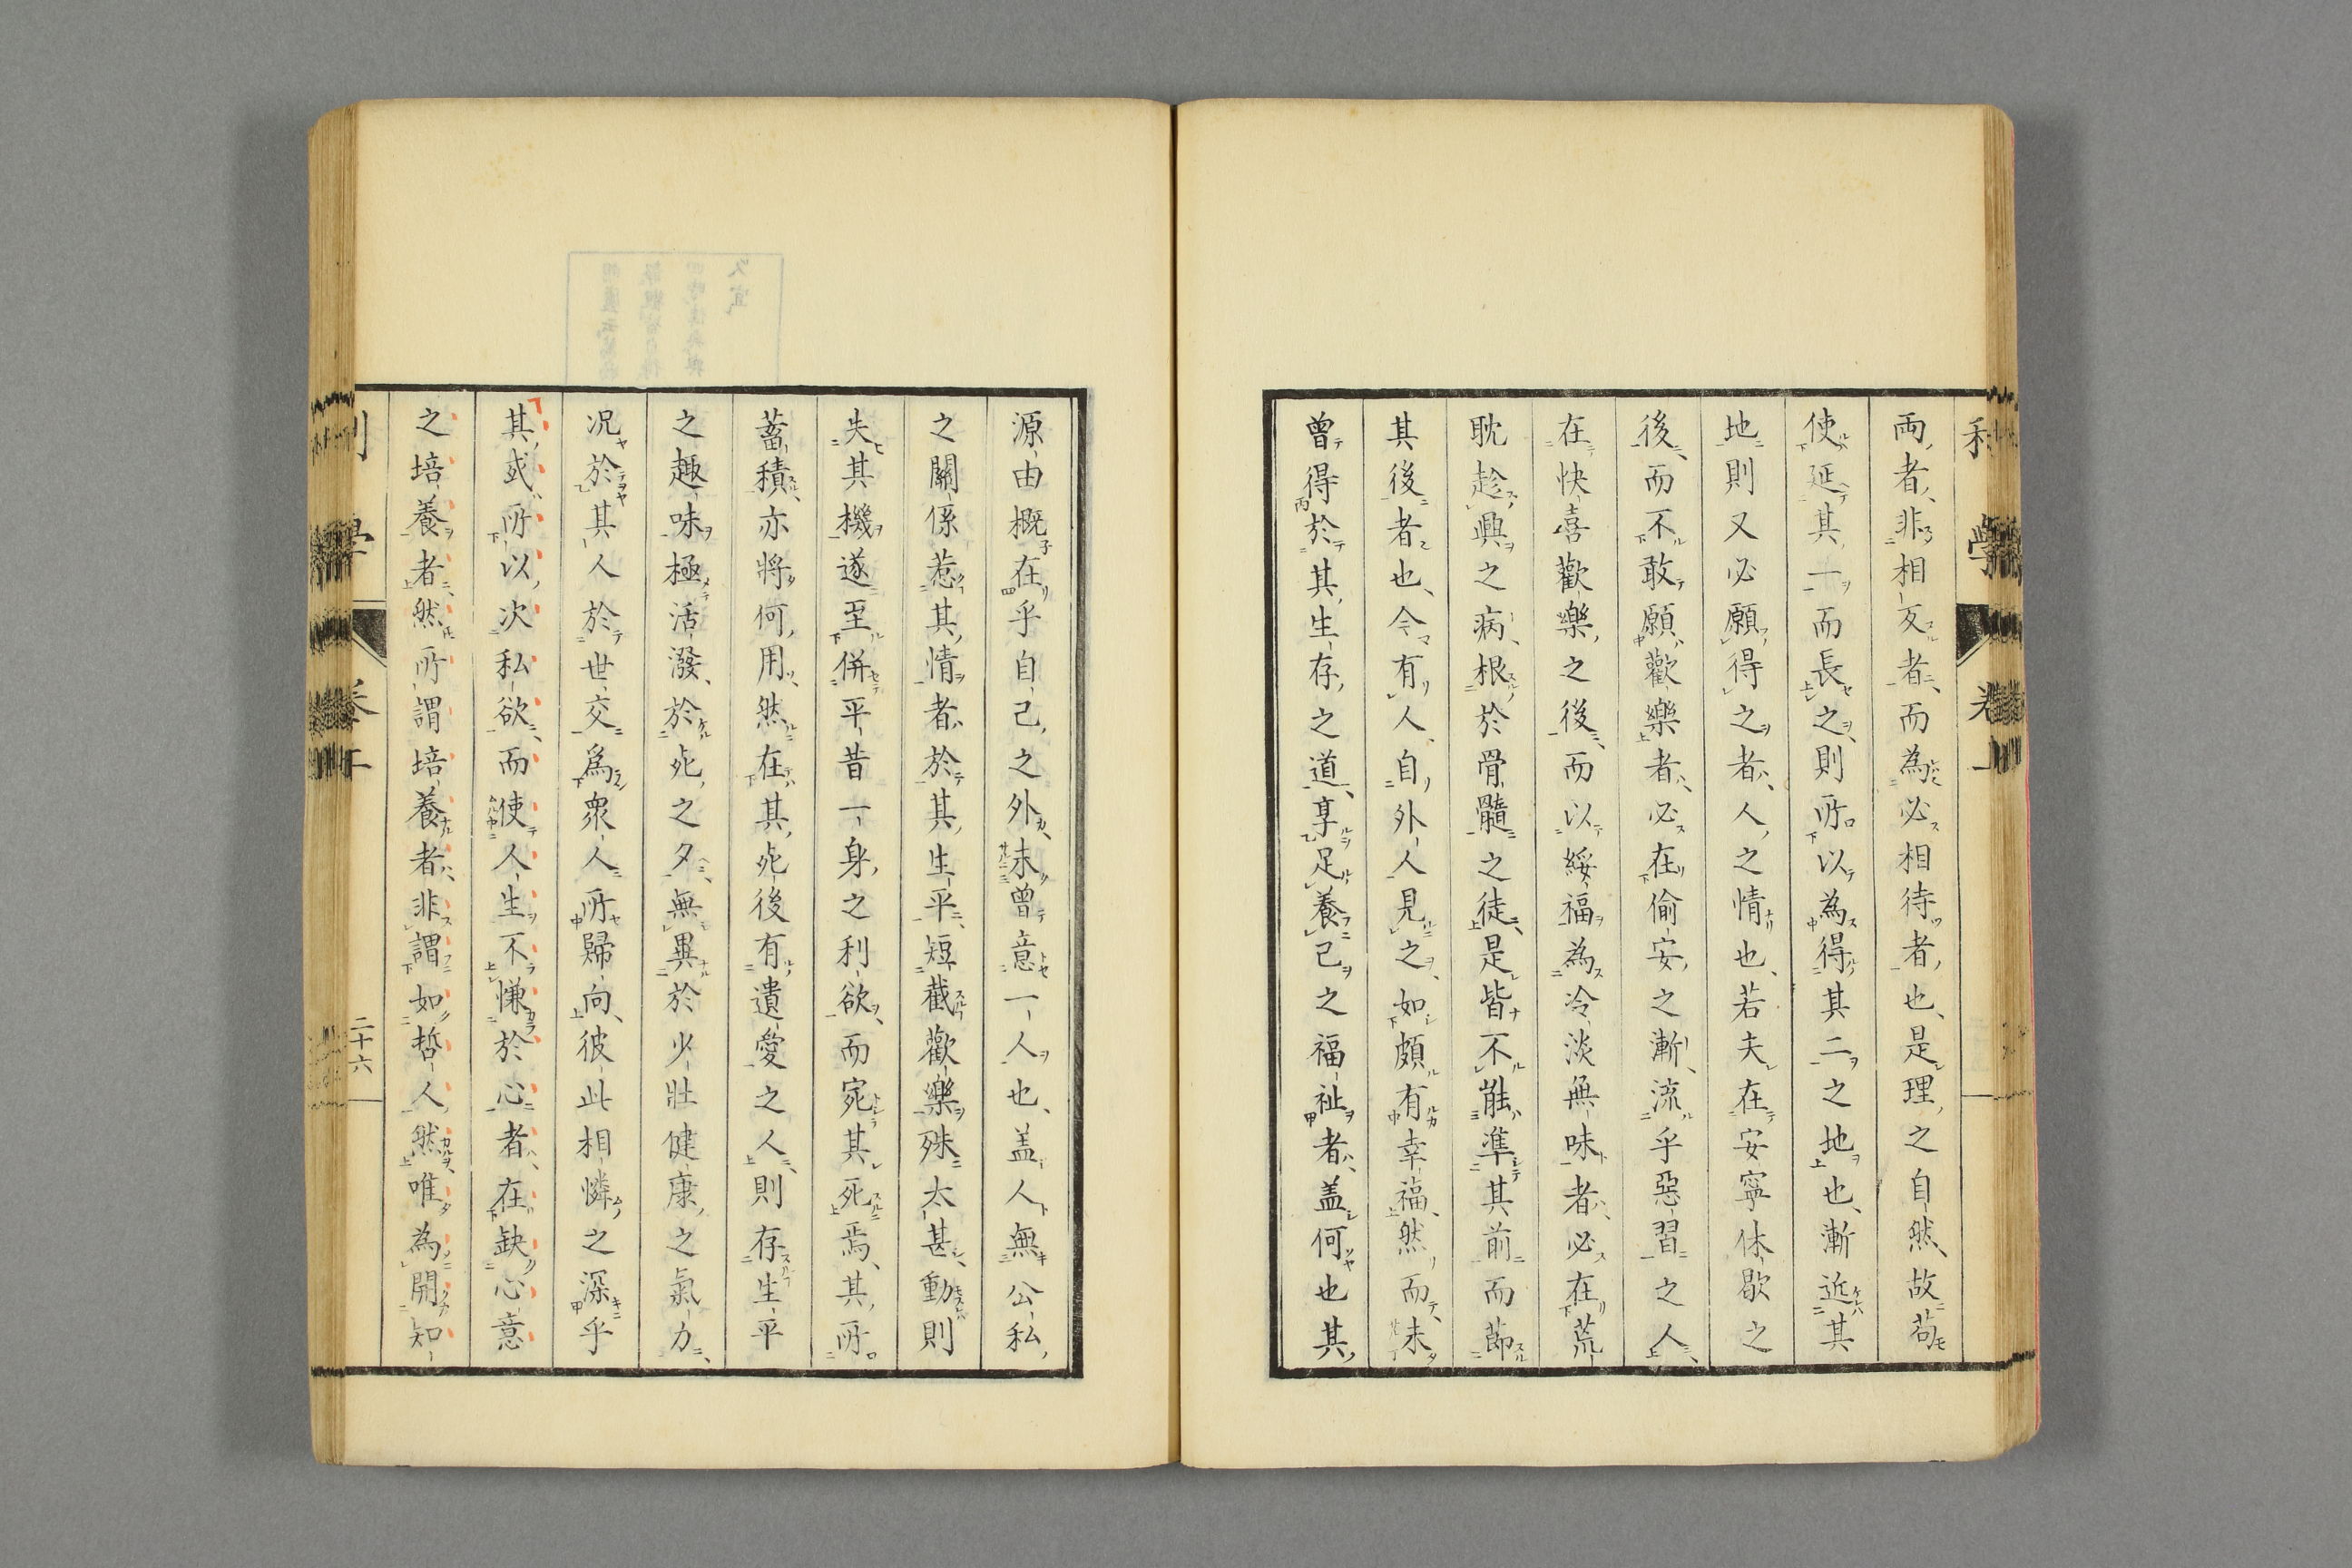 両者非相反者而為必相待者也是理之自然故苟
使延其一而長之則所以為得其二之地也漸近其
地則又必願得之者人之情也若夫在安寧休歇之
後而不敢願歡樂者必在偷安之漸流乎惡習之人
在快喜歡樂之後而以綏福為冷淡無味者必在荒
耽趁興之病根於骨髓之徒是皆不能準其前而節
其後者也今有人自外人見之如頗有幸福然而未
曾得於其生存之道享足養己之福祉者盖何也其
源由概在乎自己之外未曾意一人也盖人無公私
之關係惹其情者於其生平短截歡樂殊太甚動則
失其機遂至併平昔一身之利欲而宛其死焉其所
蓄積亦將何用然在其死後有遺愛之人則存生平
之趣味極活潑於死之夕無異於少壯健康之氣力
況於其人於世交為衆人所歸向彼此相憐之深乎
其或所以次私欲而使人生不慊於心者在缺心意
之培養者然所謂培養者非謂如哲人然唯為開知
學
二十六